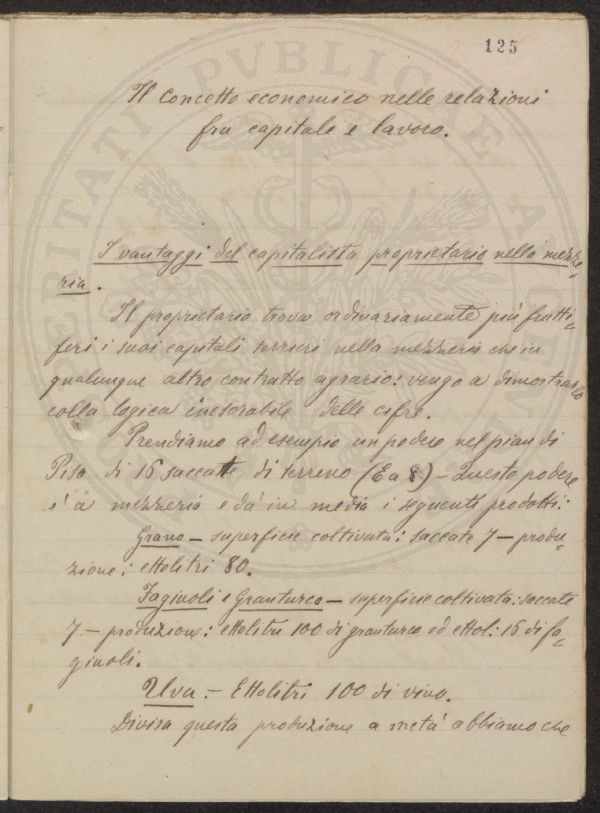 125
Il concetto economico nelle relazioni
fra capitale e lavoro.
I vantaggi del capitalista proprietario nella mezze-
ria.
Il proprietario trova ordinariamente più frutti-
feri i suoi capitali terrieri nella mezzeria che in
qualunque altro contratto agrario: vengo a dimostrarlo
colla logica inesorabile delle cifre.
Prendiamo ad esempio un podere nel pian di
Pisa di 16 saccate di terreno (Ea 8) - Questo podere
è a mezzeria e dà in media i seguenti prodotti:
Grano - superficie coltivata: saccate 7 - produ-
zione: ettolitri 80.
Fagiuoli e Granturco - superficie coltivata: saccate
7. - produzione: ettolitri 100 di granturco ed ettol: 16 di fa-
giuoli.
Uva. - Ettolitri 100 di vino.
Divisa questa produzione a metà abbiamo che